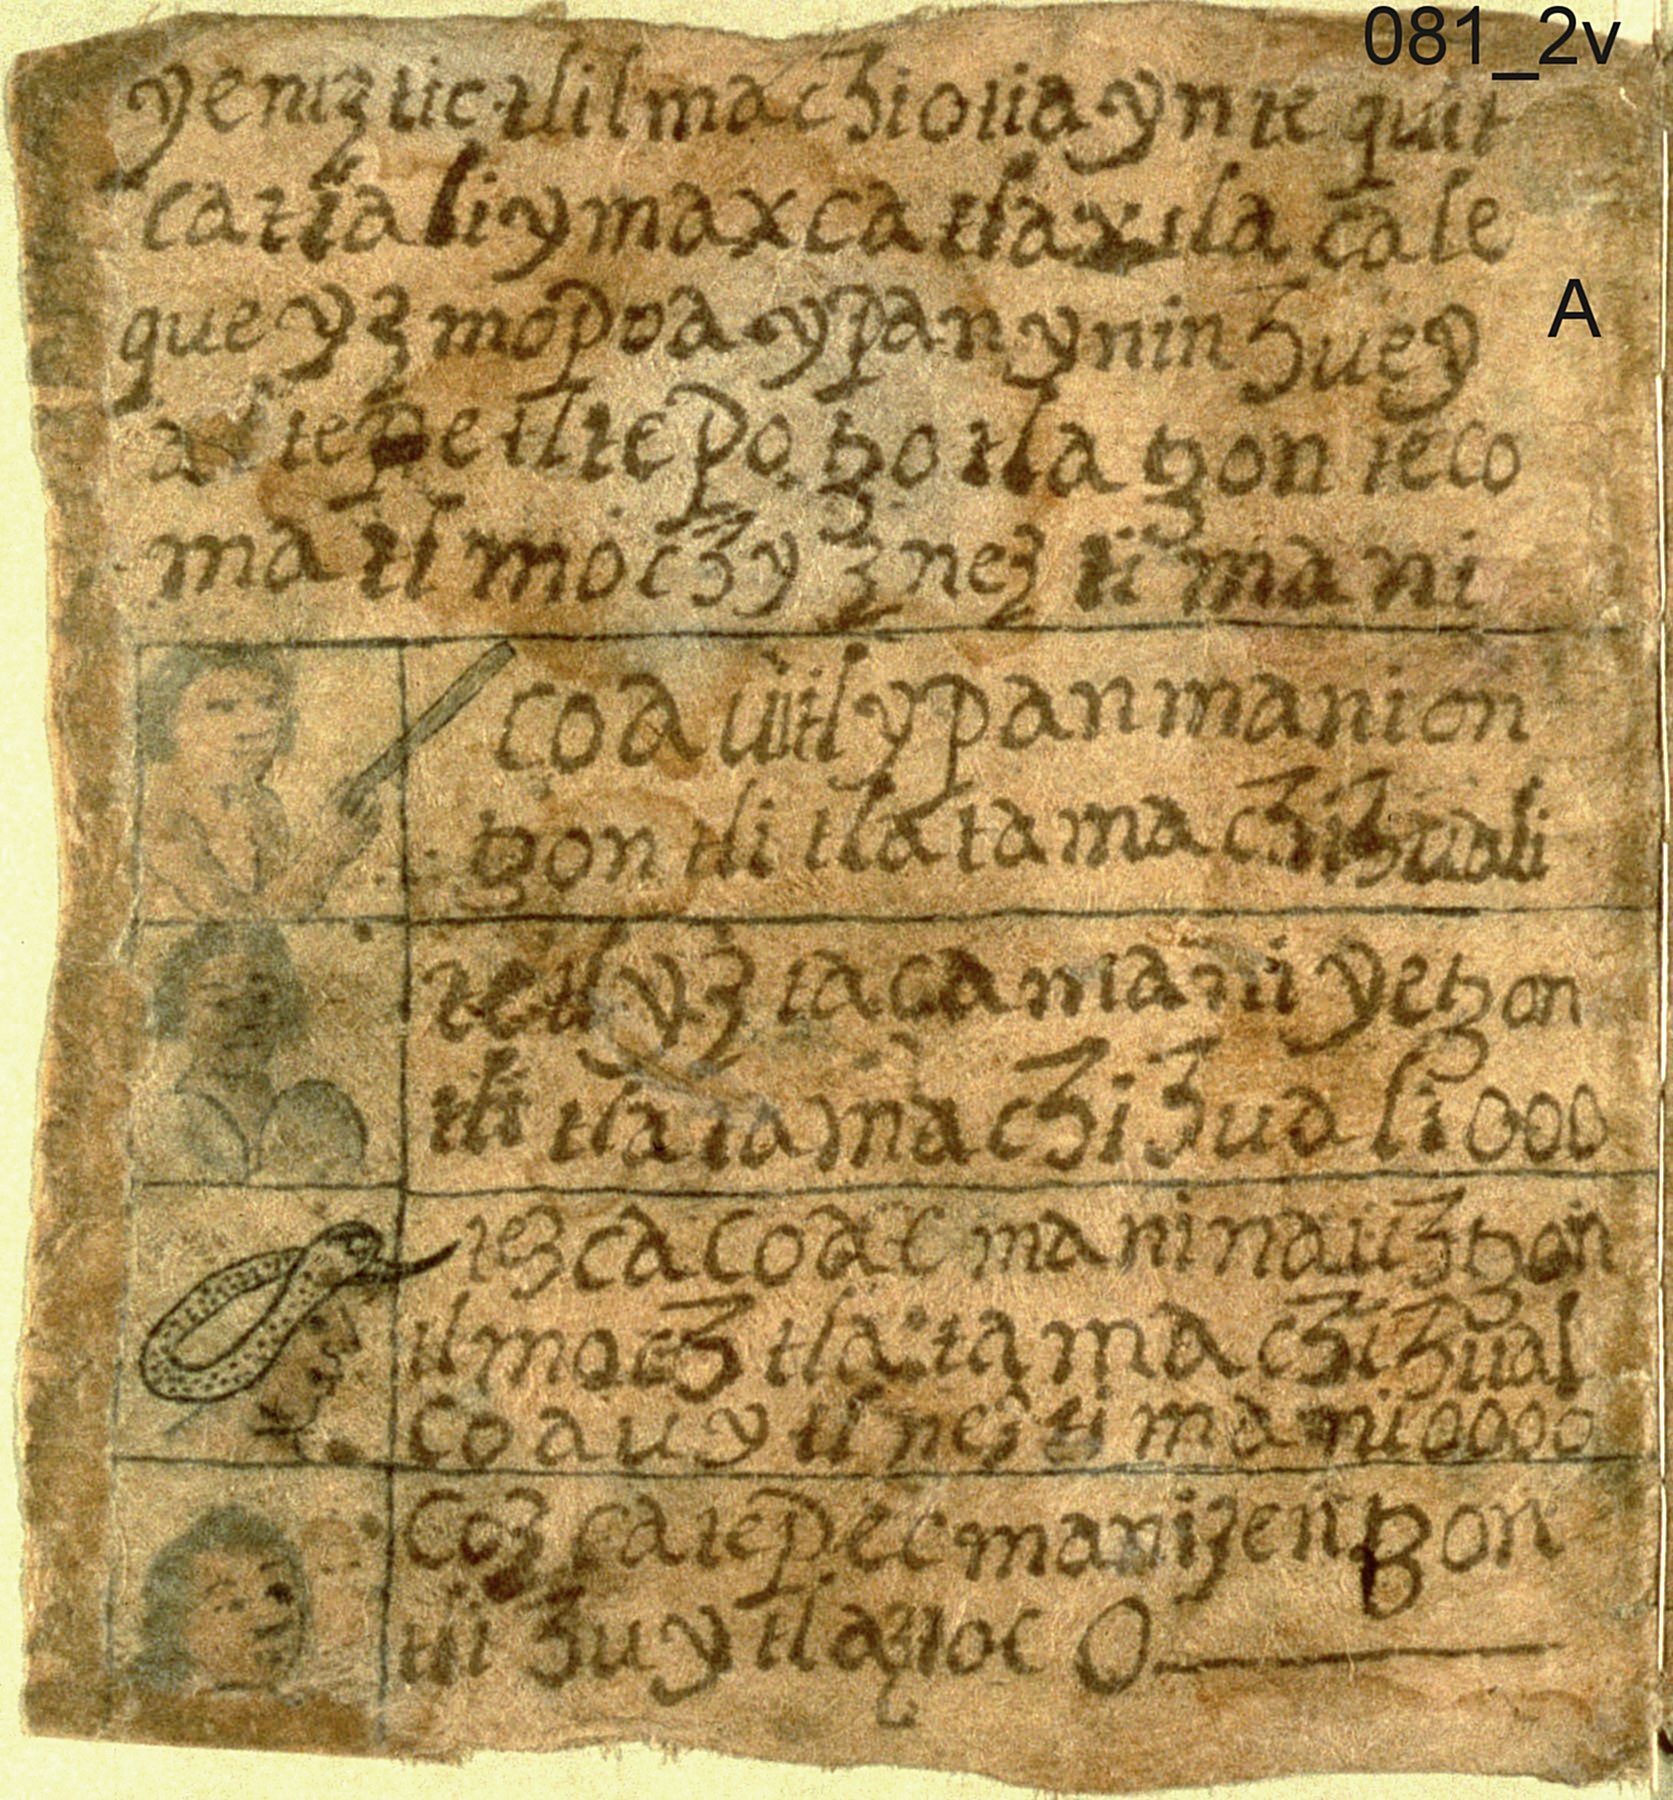 081_2v
yeniz tic tlilmachiotia yn te quit
catlali ymaxca tlaxila cale
que yz mopoa ypan ynin huey
altepetl tepotzotla tzonteco
matl moch yz nez ti mani
A
coauitl ypan mani on
tzontli tlatamachihuali
tetl yztaca mani yetzon
tli tlatamachihuali 000
tezcacoac mani nauhtzon
tl moch tlatamachihual
coauytl nez ti mani 0000
Cozcatepec mani zentzon
tli huytlaztoc 0